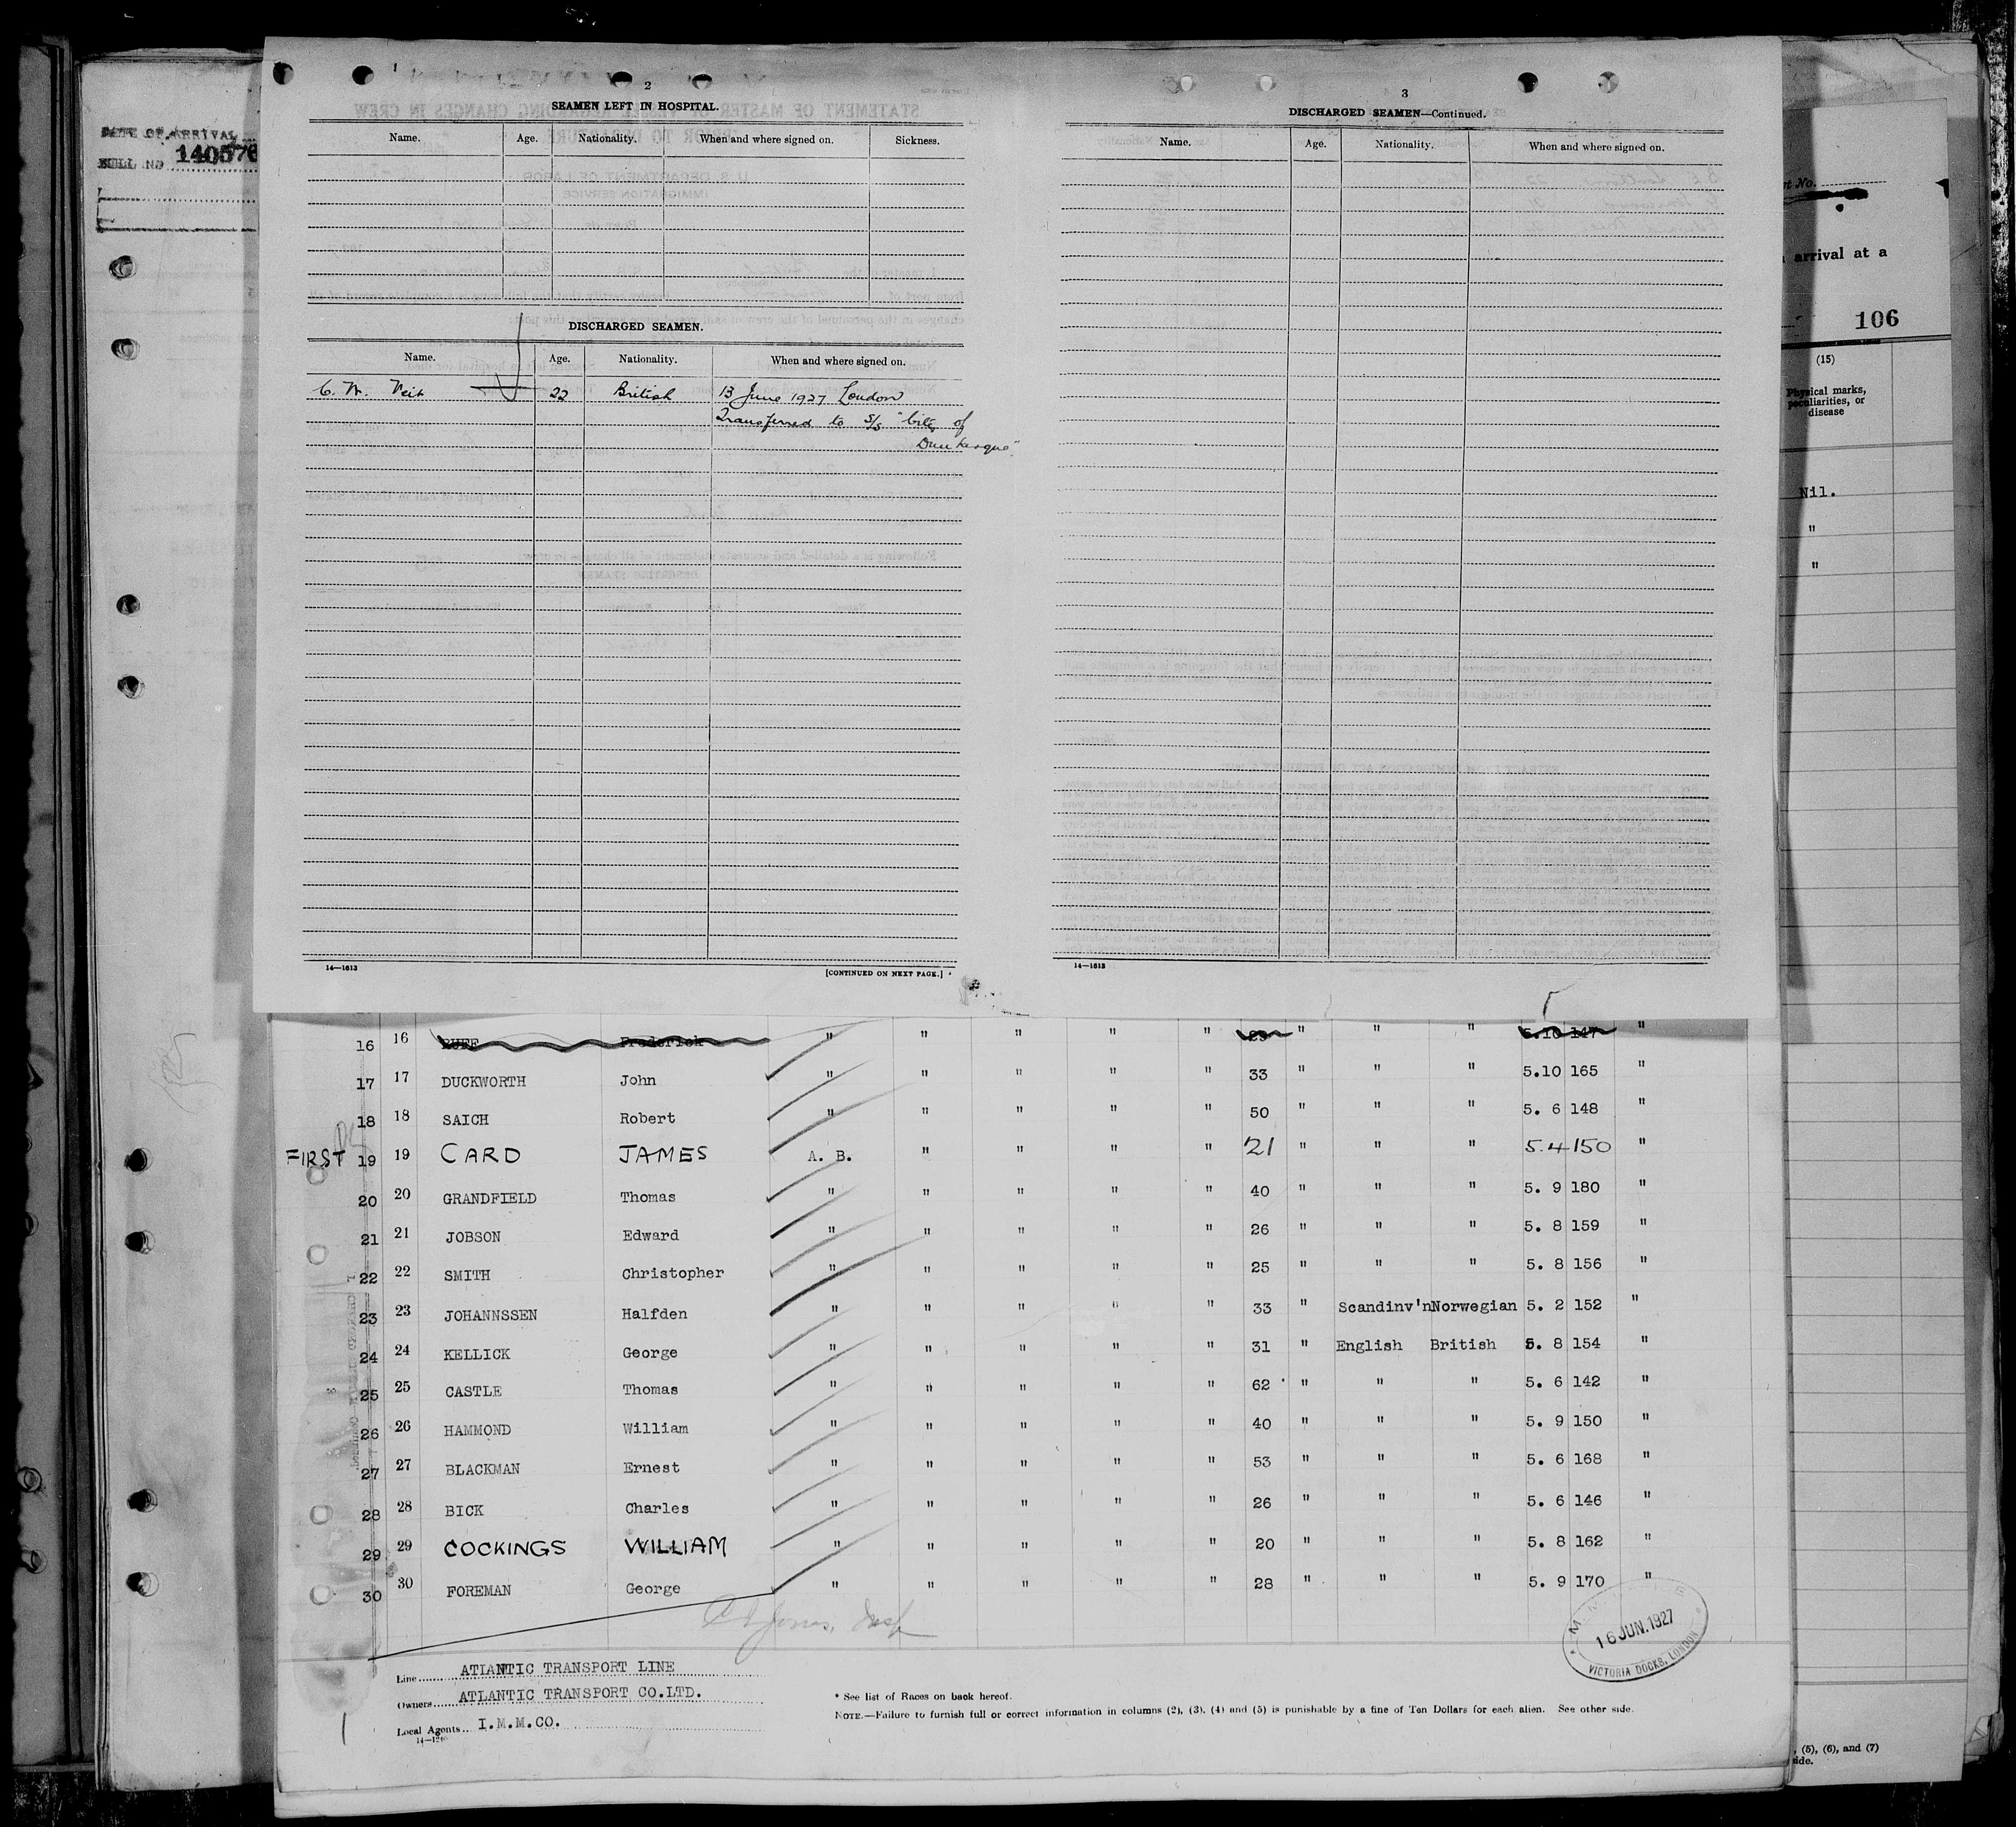 DATE OF ARRIVAL
BULL NO 140576
2
SEAMEN LEFT IN HOSPITAL.
Name. Age. Nationality. When and where signed on. Sickness.
DISCHARGED SEAMEN.
Name. Age. Nationality. When and where signed on.
22 British 13 June 1927 London
Transferred to S/S "City of
Dunkerque"
14—1613
[CONTINUED ON NEXT PAGE.]
3
DISCHARGED SEAMEN—Continued.
Name. Age. Nationality. When and where signed on.
14—1613
nt No.
arrival at a
106
(15)
Physical marks, peculiarities, or disease
Nil.
"
"
16 16 RUFF Frederick " " " " " 29 " " " 5.10 147 "
17 17 DUCKWORTH John " " " " " 33 " " " 5.10 165 "
18 18 SAICH Robert " " " " " 50 " " " 5. 6 148 "
FIRST 19 19 CARD JAMES A. B. " " " " 21 " " " 5.4 150 "
20 20 GRANDFIELD Thomas " " " " " 40 " " " 5. 9 180 "
21 21 JOBSON Edward " " " " " 26 " " " 5. 8 159 "
22 22 SMITH Christopher " " " " " 25 " " " 5. 8 156 "
23 23 JOHANNSSEN Halfden " " " " " 33 " Scandinv'n Norwegian 5. 2 152 "
24 24 KELLICK George " " " " " 31 " English British 5. 8 154 "
25 25 CASTLE Thomas " " " " " 62 " " " 5. 6 142 "
26 26 HAMMOND William " " " " " 40 " " " 5. 9 150 "
27 27 BLACKMAN Ernest " " " " " 53 " " " 5. 6 168 "
28 28 BICK Charles " " " " " 26 " " " 5. 6 146 "
29 29 COCKINGS WILLIAM " " " " " 20 " " " 5. 8 162 "
30 30 FOREMAN George " " " " " 28 " " " 5. 9 170 "
Jones, Insp
16 JUN. 1927
VICTORIA DOCKS, LONDON
Line ATLANTIC TRANSPORT LINE
Owners ATLANTIC TRANSPORT CO.LTD.
Local Agents I.M.M.CO.
* See list of Races on back hereof.
NOTE.—Failure to furnish full or correct information in columns (2), (3), (4) and (5) is punishable by a fine of Ten Dollars for each alien. See other side.
, (5), (6), and (7)
side.